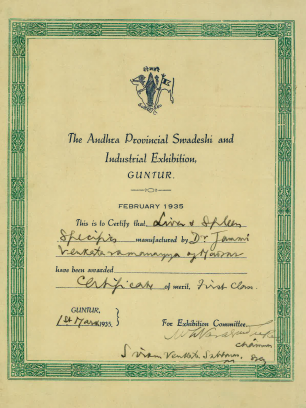 The Andhra Provincial Swadeshi and
Industrial Exhibition,
GUNTUR.
FEBRUARY 1935
This is to Certify that Liver & Spleen
Specifics manufactured by Dr Jammi
Venkataramanayya of Madras
have been awarded
Certificate of merit. First Class.
GUNTUR,
1st March 1935.
For Exhibition Committee.
Chairman